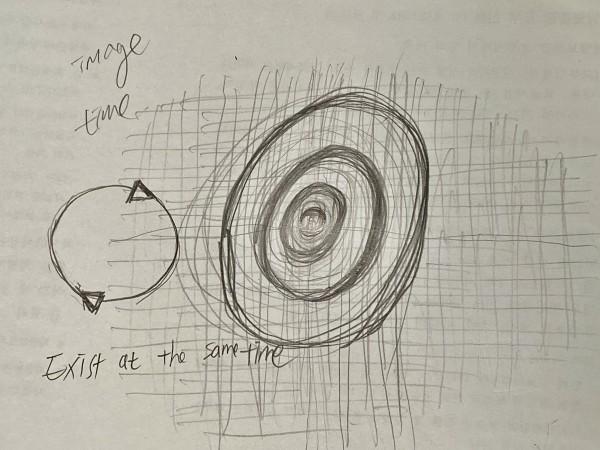 image
time
Exist at the same time